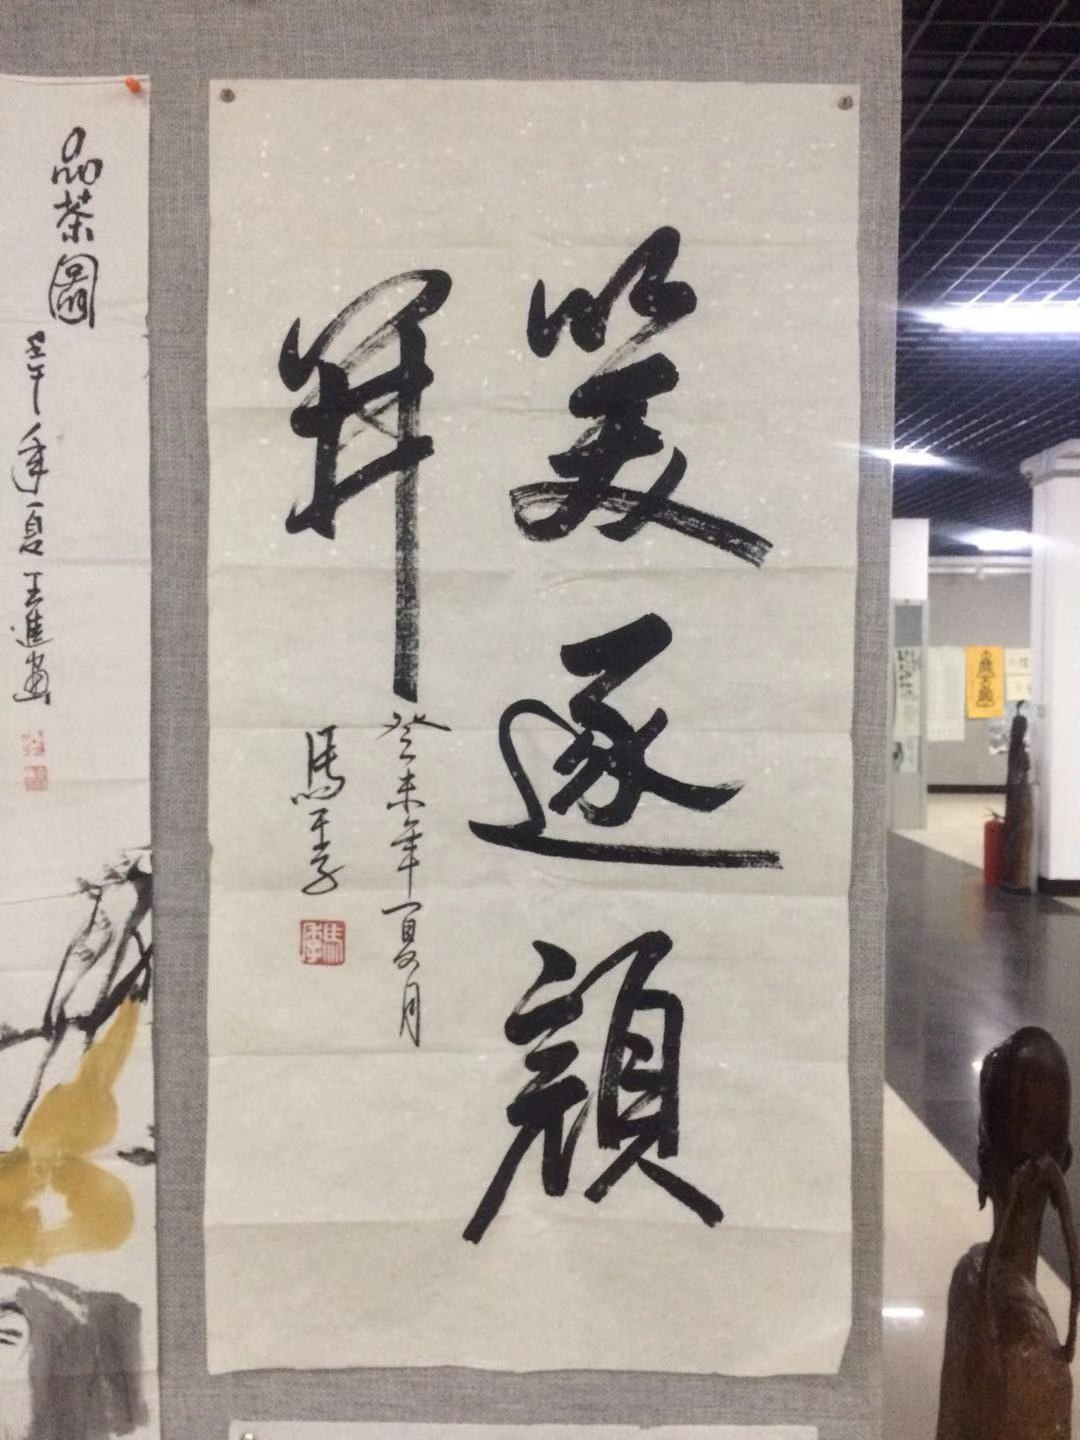 笑逐顔
開
癸未年夏月
馬季
馬季
品茶圖
壬午年夏王進畫